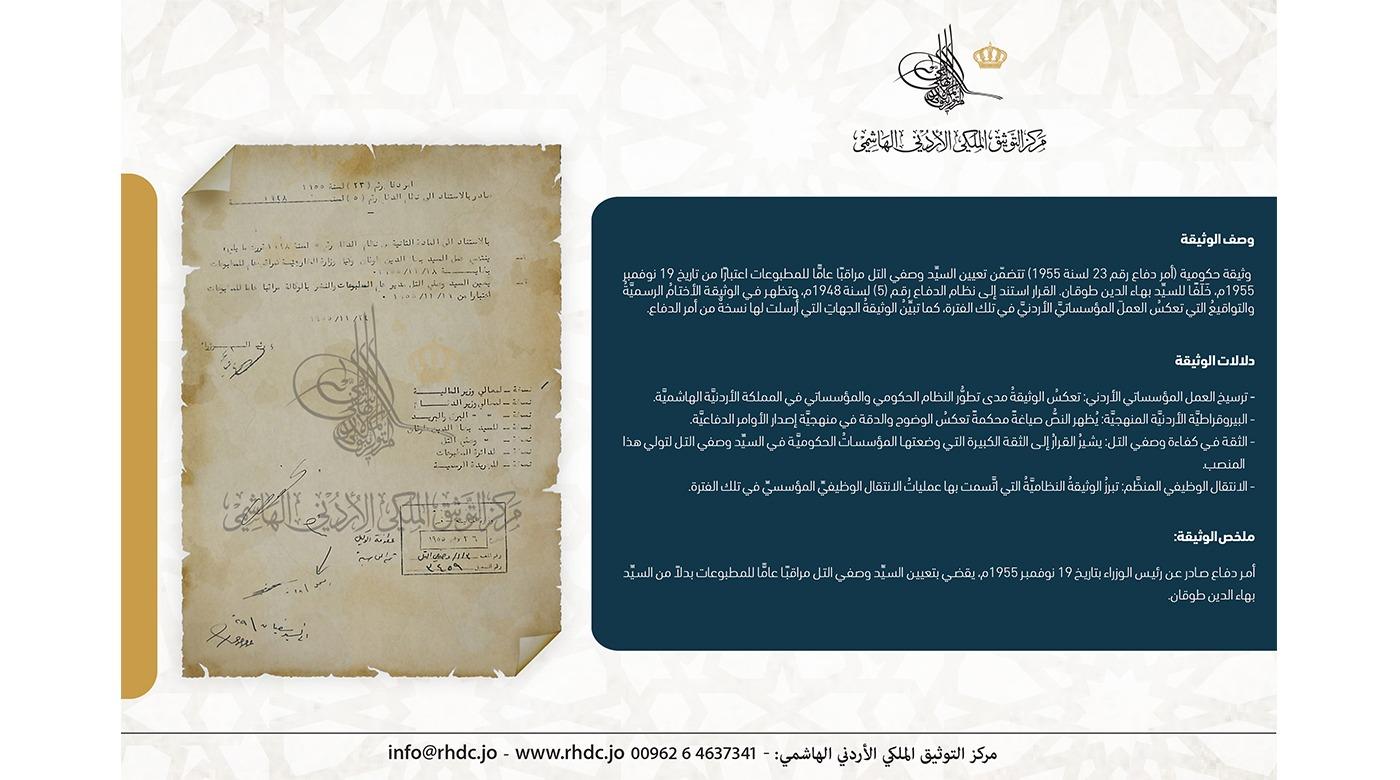 مركز التوثيق الملكي الأردني الهاشمي
وصف الوثيقة
وثيقة حكومية (أمر دفاع رقم 23 لسنة 1955) تتضمّن تعيين السيِّد وصفي التل مراقبًا عامًّا للمطبوعات اعتبارًا من تاريخ 19 نوفمبر
1955م، خَلَفًا للسيِّد بهاء الدين طوقان. القرار استند إلى نظام الدفاع رقم (5) لسنة 1948م، وتظهر في الوثيقة الأختامُ الرسميَّةُ
والتواقيعُ التي تعكسُ العملَ المؤسساتيَّ الأردنيَّ في تلك الفترة، كما تبيِّنُ الوثيقةُ الجهاتِ التي أُرسلت لها نسخةٌ من أمر الدفاع.
دلالات الوثيقة
- ترسيخ العمل المؤسساتي الأردني: تعكسُ الوثيقةُ مدى تطوُّر النظام الحكومي والمؤسساتي في المملكة الأردنيَّة الهاشميَّة.
- البيروقراطيَّة الأردنيَّة المنهجيَّة: يُظهر النصُّ صياغةً محكمةً تعكسُ الوضوح والدقة في منهجيَّة إصدار الأوامر الدفاعيَّة.
- الثقة في كفاءة وصفي التل: يشيرُ القرارُ إلى الثقة الكبيرة التي وضعتها المؤسساتُ الحكوميَّة في السيِّد وصفي التل لتولي هذا
المنصب.
- الانتقال الوظيفي المنظَّم: تبرزُ الوثيقةُ النظاميَّةُ التي اتَّسمت بها عملياتُ الانتقال الوظيفيِّ المؤسسيِّ في تلك الفترة.
ملخص الوثيقة:
أمر دفاع صادر عن رئيس الوزراء بتاريخ 19 نوفمبر 1955م، يقضي بتعيين السيِّد وصفي التل مراقبًا عامًّا للمطبوعات بدلاً من السيِّد
بهاء الدين طوقان.
امر دفاع رقم (٢٣) لسنة ١٩٥٥
صادر بالاستناد الى نظام الدفاع رقم (٥) لسنة ١٩٤٨
نسخة - لمعالي وزير المالية
نسخة - لمعالي وزير الدفاع
نسخة - لدائرة المطبوعات
نسخة - للجريدة الرسمية
مركز التوثيق الملكي الأردني الهاشمي
٣٤٥٩
مركز التوثيق الملكي الأردني الهاشمي: - 00962 6 4637341 www.rhdc.jo - info@rhdc.jo